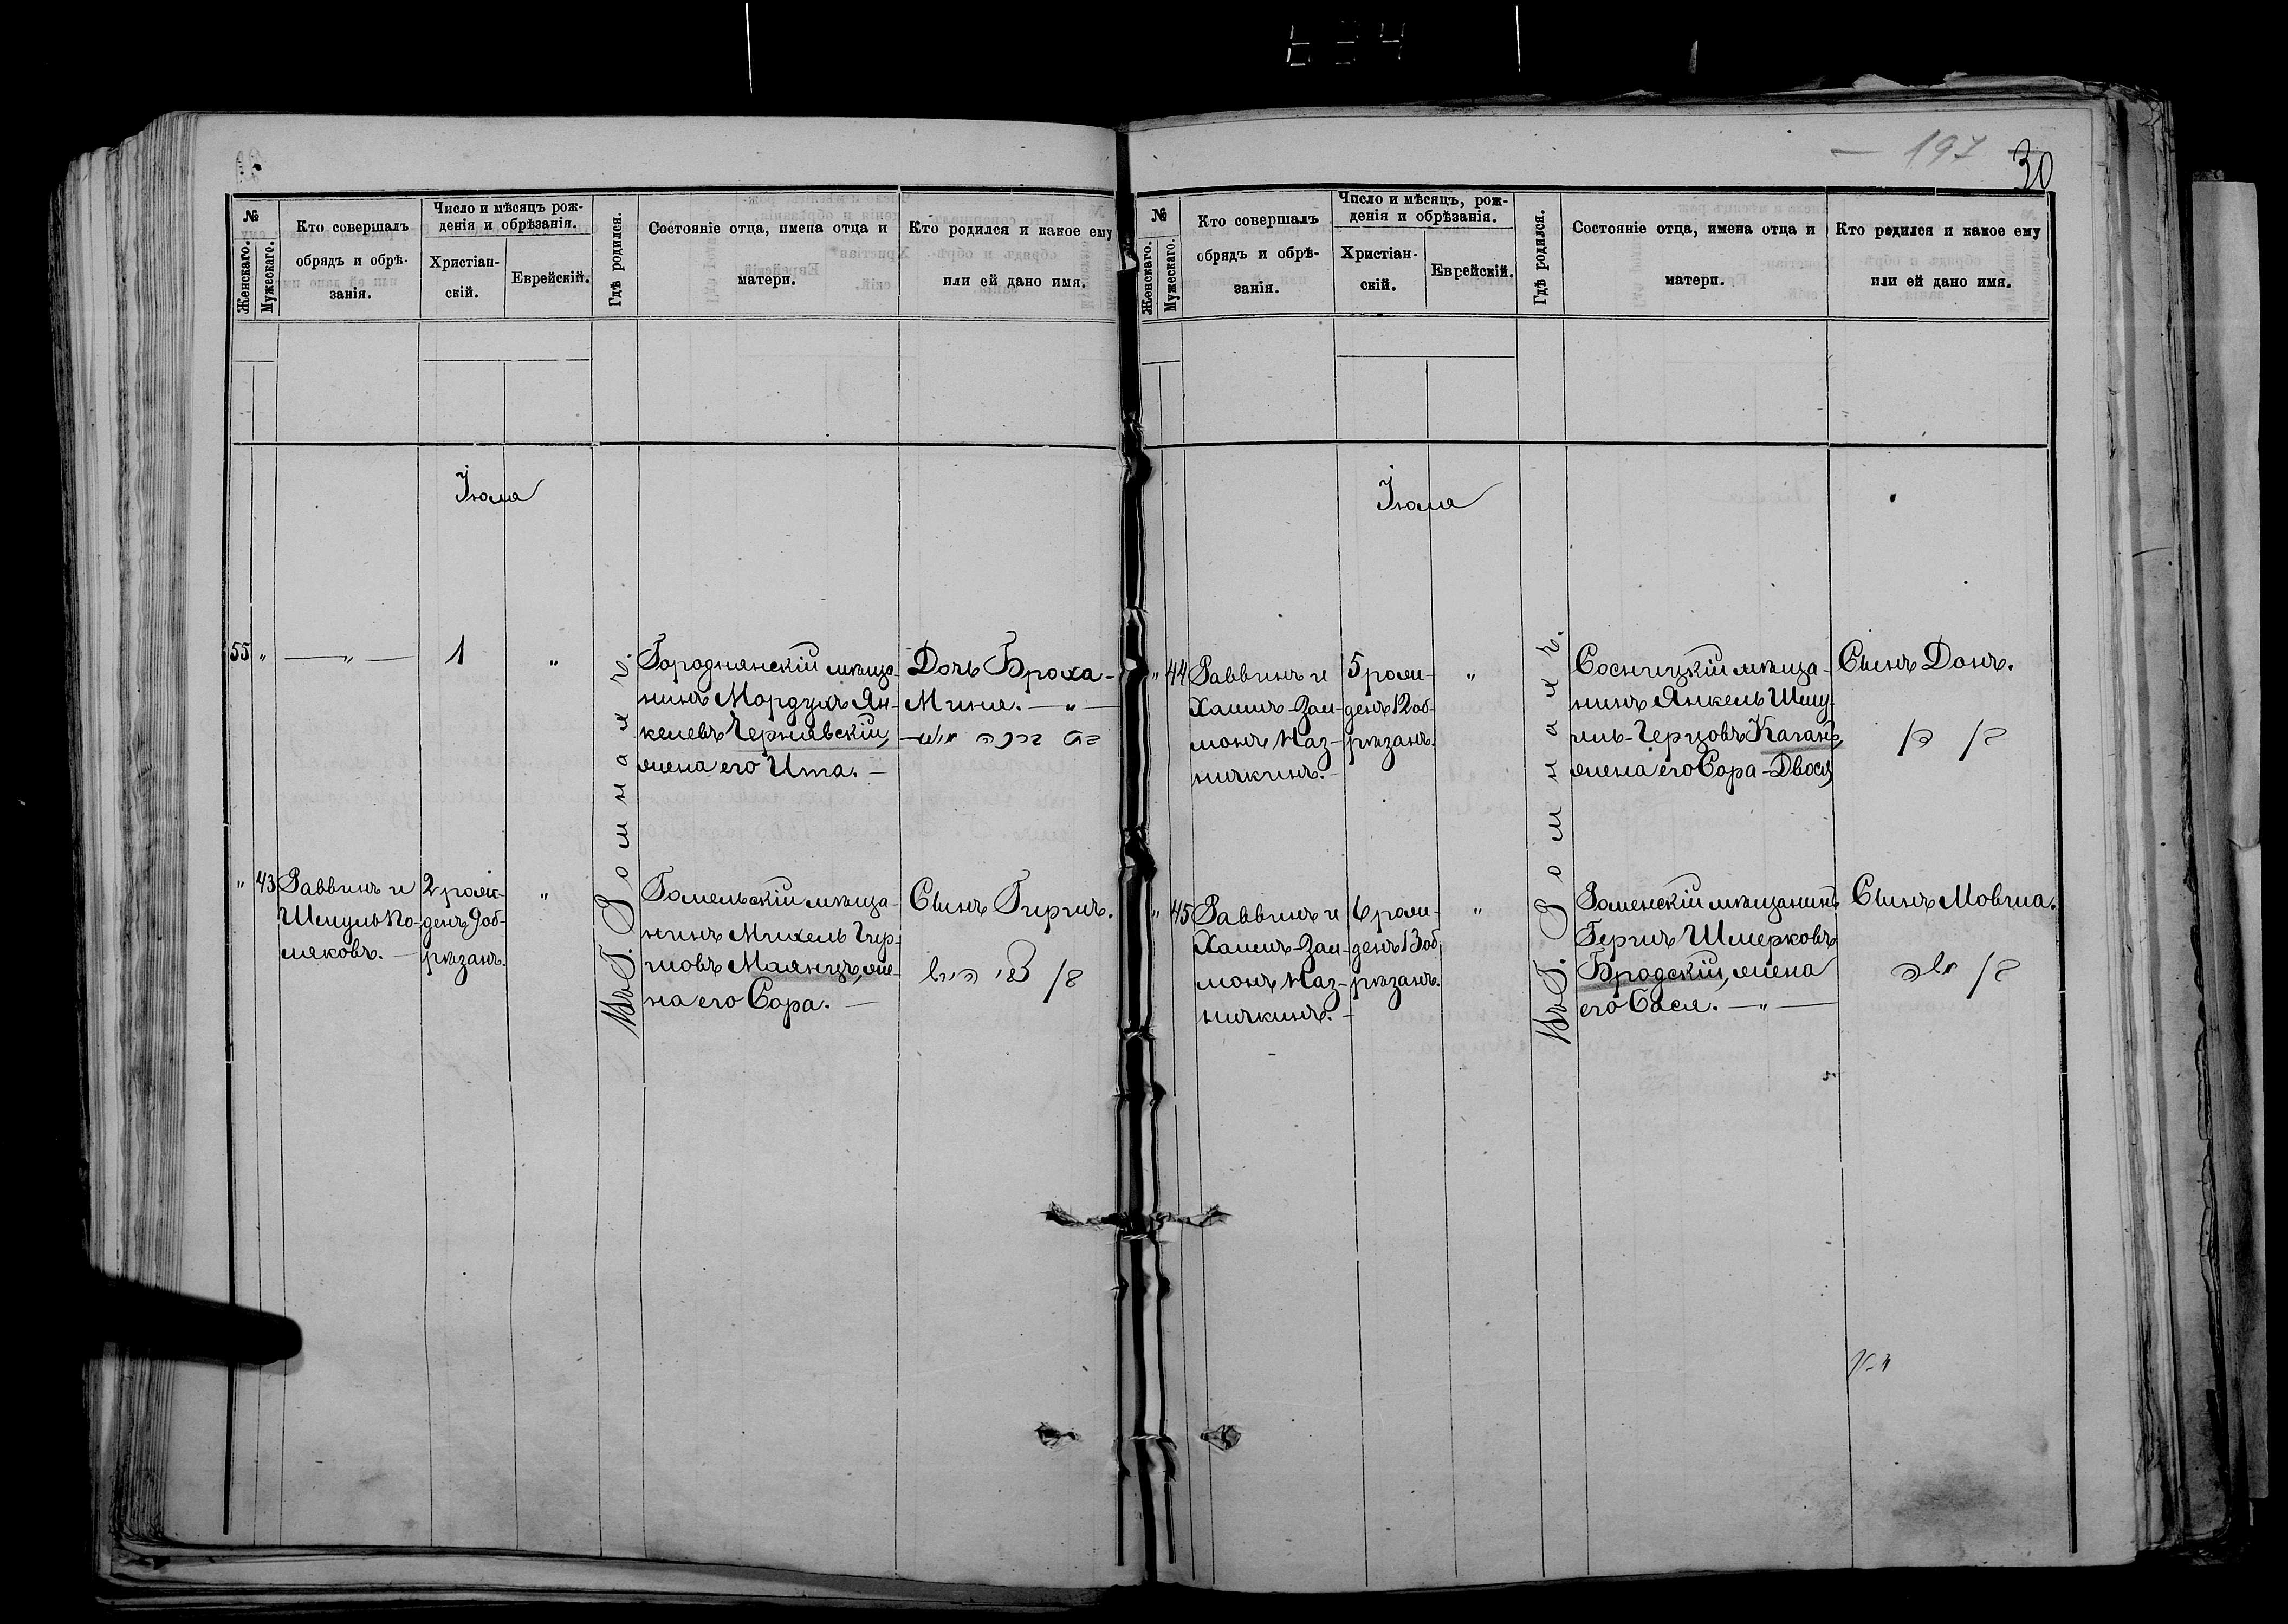 — 197 —
30
№
Женскаго.
Мужескаго.
Кто совершалъ
обрядъ и обрѣ-
занія.
Число и мѣсяцъ рож-
денія и обрѣзанія.
Христіан-
скій.
Еврейскій.
Гдѣ родился.
Состояніе отца, имена отца и
матери.
Кто родился и какое ему
или ей дано имя.
Іюля
55 " —"— 1 "
Въ Г. Ромнахъ.
Городнянскій мѣща-
нинъ Мордухъ Ян-
келевъ Чернявскій,
жена его Ита. —
Дочь Броха-
Миня. —"—
" 43
Раввинъ и
Шмуль По-
ляковъ. —
2 рож-
денъ 9 об-
рѣзанъ.
"
Гомельскій мѣща-
нинъ Михель Гир-
шовъ Маянцъ, же-
на его Сора. —
Сынъ Гиршъ.
בן צבי הירש
№
Женскаго.
Мужескаго.
Кто совершалъ
обрядъ и обрѣ-
занія.
Число и мѣсяцъ, рож-
денія и обрѣзанія.
Христіан-
скій.
Еврейскій.
Гдѣ родился.
Состояніе отца, имена отца и
матери.
Кто родился и какое ему
или ей дано имя.
Іюля
" 44
Раввинъ и
Хаимъ-Зал-
монъ Маз-
ничкинъ. —
5 рож-
денъ 12 об-
рѣзанъ.
"
Въ Г. Ромнахъ.
Сосницкій мѣща-
нинъ Янкель Шму-
иль-Герцовъ Каганъ,
жена его Сора-Двося
Сынъ Донъ.
בן דן
" 45
Раввинъ и
Хаимъ-Зал-
монъ Маз-
ничкинъ. —
6 рож-
денъ 13 об-
рѣзанъ.
"
Роменскій мѣщанинъ
Гершъ Шмерковъ
Бродскій, жена
его Бася. —"—
Сынъ Мовша.
בן משה